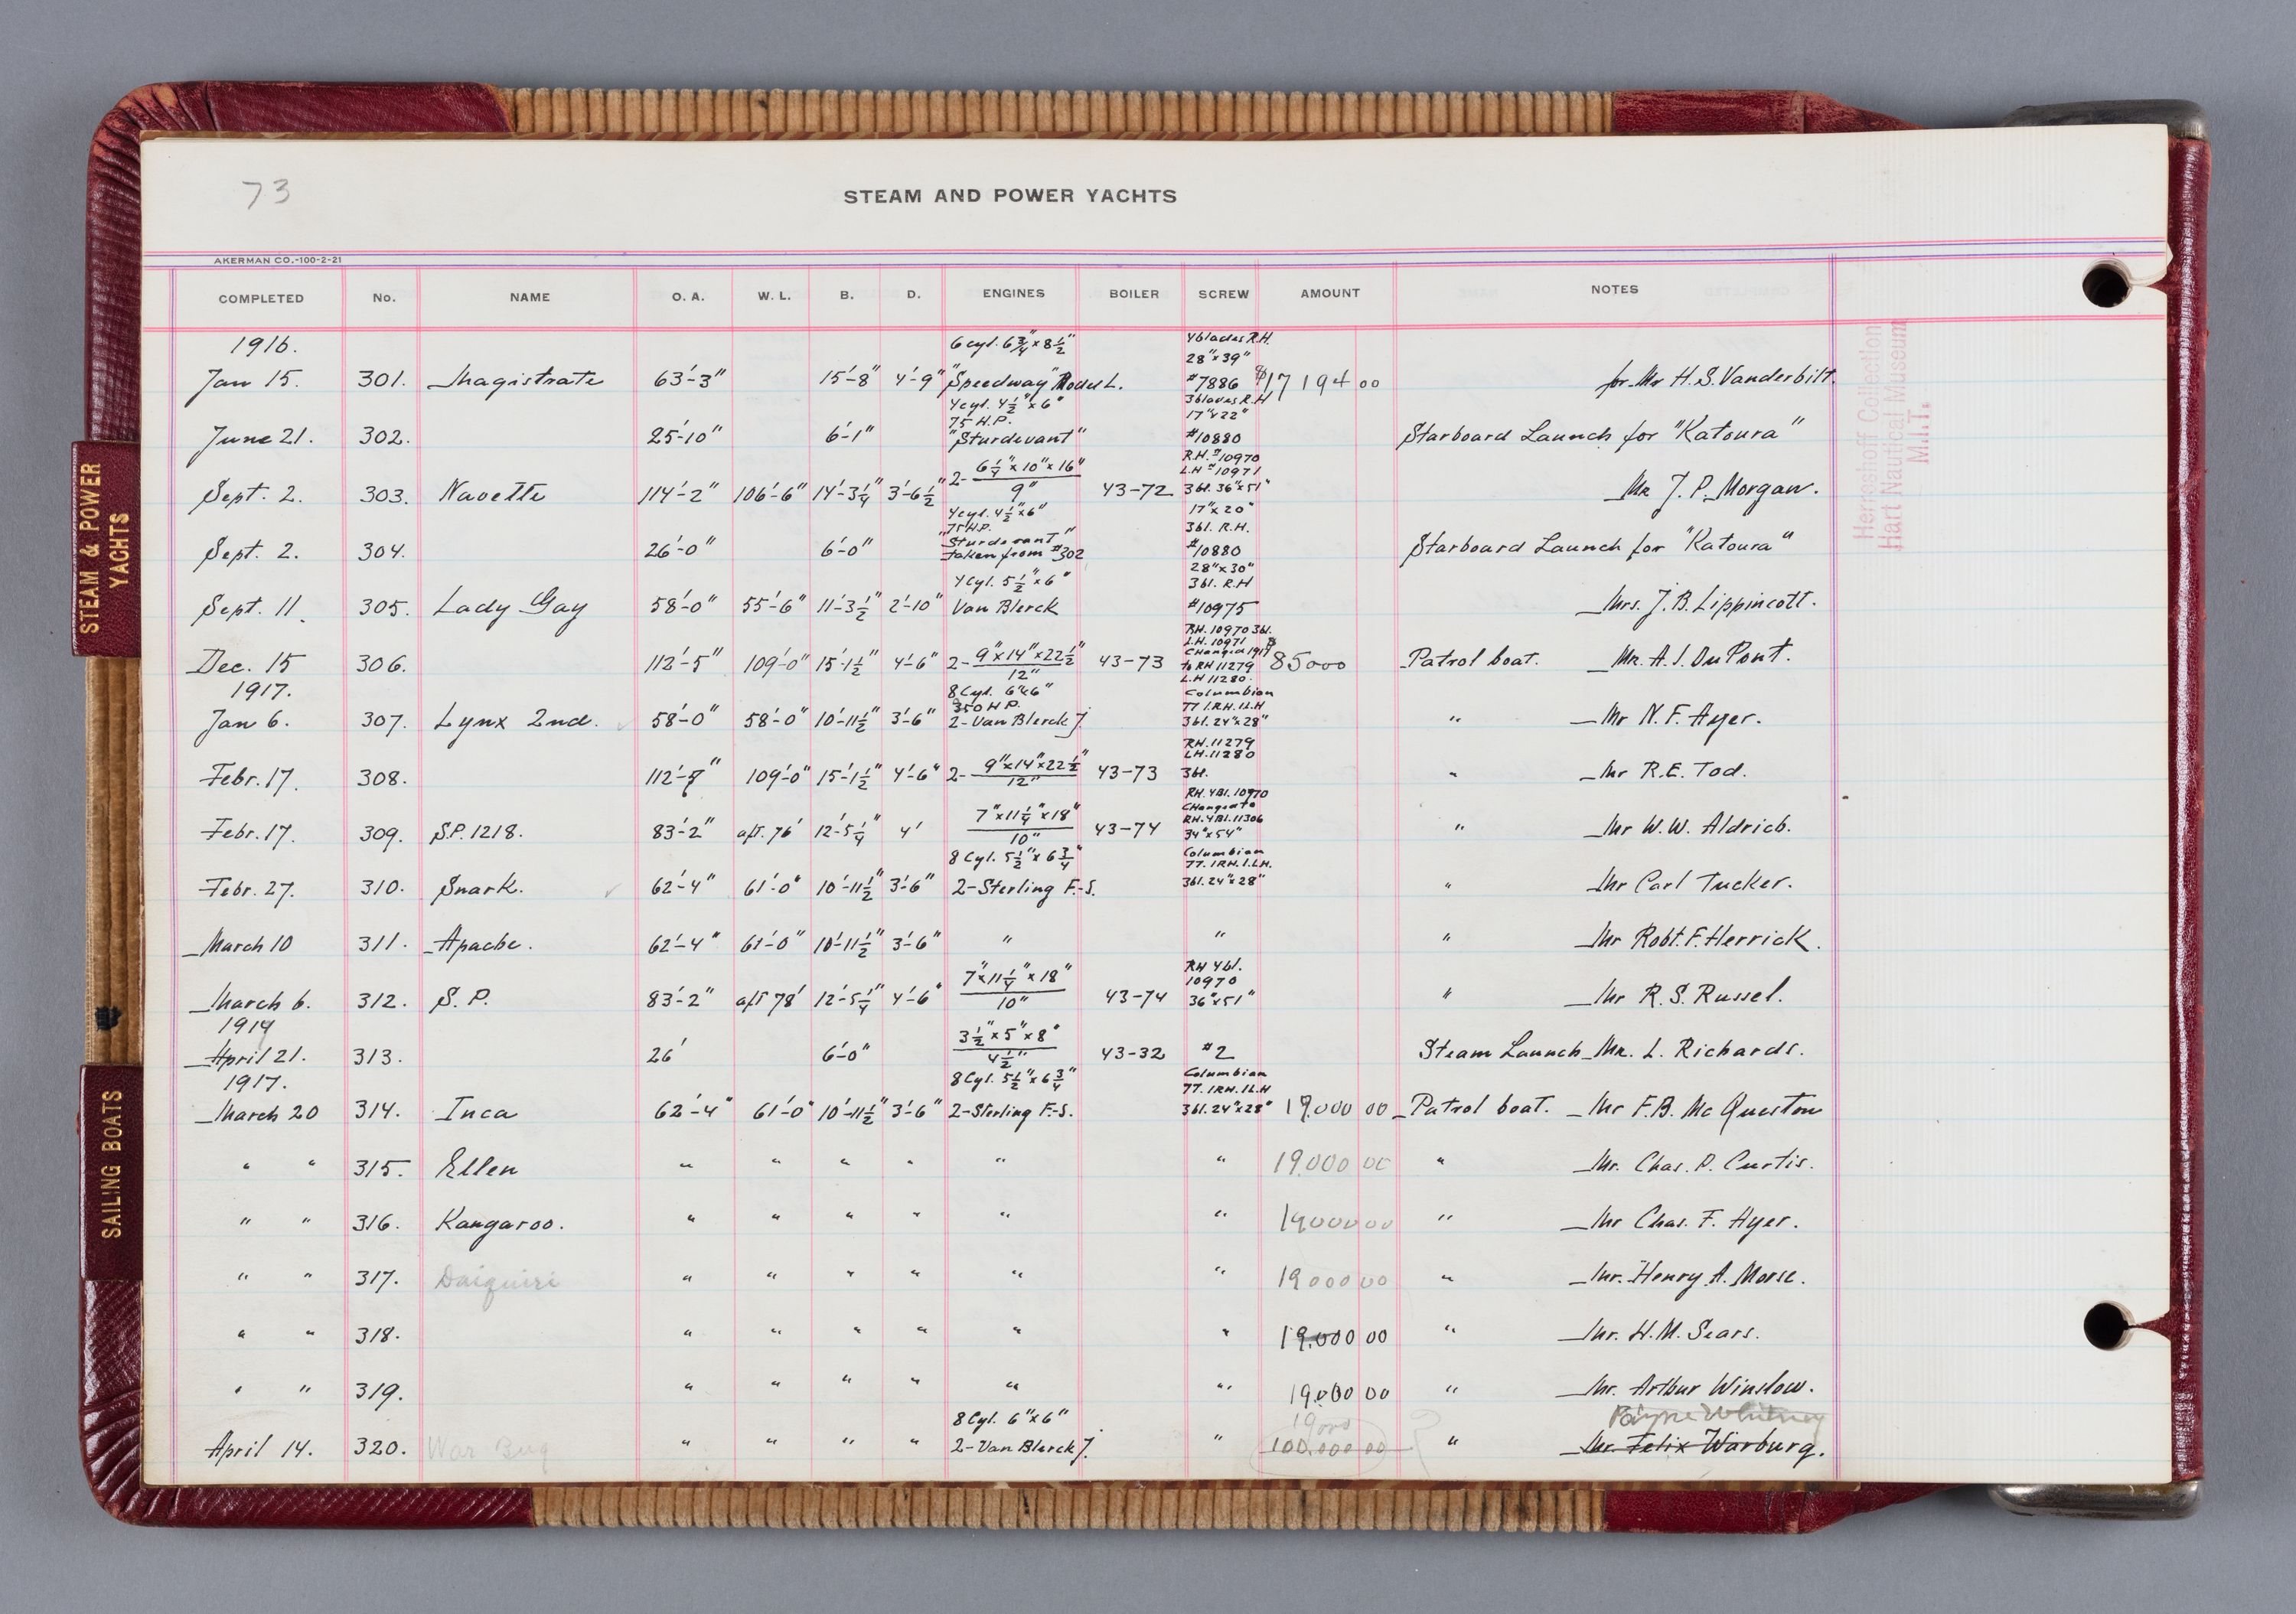 73
STEAM AND POWER YACHTS
AKERMAN CO.-100-2-21
COMPLETED No. NAME O. A. W. L. B. D. ENGINES BOILER SCREW AMOUNT NOTES
1916. 6 cyl. 6 3/4" x 8 1/2" 4 blades R.H. 28" x 39"
Jan 15. 301. Magistrate 63'-3" 15'-8" 4'-9" "Speedway" Model L. #7886 $17194 00 for Mr H.S. Vanderbilt.
4 cyl. 4 1/2" x 6" 75 H.P. 3 blades R.H 17" x 22"
June 21. 302. 25'-10" 6'-1" "Sturdevant" #10880 Starboard Launch for "Katoura"
R.H. #10970 L.H #10971
Sept. 2. 303. Navette 114'-2" 106'-6" 14'-3 1/4" 3'-6 1/2" 2- 6 1/4" x 10" x 16" / 9" 43-72 3 bl. 36" x 51" Mr J. P. Morgan.
4 cyl. 4 1/2" x 6" 75 H.P. "Sturdevant" 17" x 20" 3 bl. R.H.
Sept. 2. 304. 26'-0" 6'-0" taken from #302 #10880 Starboard Launch for "Katoura"
4 Cyl. 5 1/2" x 6" 28" x 30" 3 bl. R.H
Sept. 11. 305. Lady Gay 58'-0" 55'-6" 11'-3 1/2" 2'-10" Van Blerck #10975 Mrs. J. B. Lippincott.
RH. 10970 3 bl. L.H. 10971 Changed 1917
Dec. 15 306. 112'-5" 109'-0" 15'-1 1/2" 4'-6" 2- 9" x 14" x 22 1/2" / 12" 43-73 to RH 11279 L.H 11280. $85000 Patrol boat. Mr. A. I. DuPont.
1917. 8 Cyl. 6" x 6" 350 H.P. Columbian 77 1.RH. 1L.H
Jan 6. 307. Lynx 2nd. 58'-0" 58'-0" 10'-11 1/2" 3'-6" 2-Van Blerck J. 3 bl. 24" x 28" " Mr N. F. Ayer.
RH. 11279 LH. 11280
Febr. 17. 308. 112'- " 109'-0" 15'-1 1/2" 4'-6" 2- 9" x 14" x 22 1/2" / 12" 43-73 3 bl. " Mr R.E. Tod.
RH. 4 Bl. 10970 Changed to RH. 4 Bl. 11306
Febr. 17. 309. S.P. 1218. 83'-2" 76' 12'-5 1/4" 4' 7" x 11 1/4" x 18" / 10" 43-74 34" x 54" " Mr W.W. Aldrich.
8 Cyl. 5 1/2" x 6 3/4" Columbian 77. 1RH. 1.LH.
Febr. 27. 310. Snark. 62'-4" 61'-0" 10'-11 1/2" 3'-6" 2-Sterling F.-S. 3 bl. 24" x 28" " Mr Carl Tucker.
March 10 311. Apache. 62'-4" 61'-0" 10'-11 1/2" 3'-6" " " " Mr Robt. F. Herrick.
RH 4 bl. 10970
March 6. 312. S. P. 83'-2" 78' 12'-5 1/4" 4'-6" 7" x 11 1/4" x 18" / 10" 43-74 36" x 51" " Mr R. S. Russel.
April 21. 313. 26' 6'-0" 3 1/2" x 5" x 8" / 4 1/2" 43-32 #2 Steam Launch Mr. L. Richards.
1917. 8 Cyl. 5 1/2" x 6 3/4" Columbian 77. 1RH. 1L.H
March 20 314. Inca 62'-4" 61'-0" 10'-11 1/2" 3'-6" 2-Sterling F.-S. 3 bl. 24" x 28" 19.000 00 Patrol boat. Mr F.B. McQuesten
" " 315. Ellen " " " " " " 19.000 00 " Mr. Chas. P. Curtis.
" " 316. Kangaroo. " " " " " " 19000 00 " Mr Chas. F. Ayer.
" " 317. Daiquiri " " " " " " 19000 00 " Mr. Henry A. Morse.
" " 318. " " " " " " 19.000 00 " Mr. H.M. Sears.
" " 319. " " " " " " 19.000 00 " Mr. Arthur Winslow.
8 Cyl. 6" x 6" 19000 Payne Whitney
April 14. 320. War Bug " " " " 2-Van Blerck J. " 100.000 00 " Mr. Felix Warburg.
Herreshoff Collection
Hart Nautical Museum
M.I.T.
STEAM & POWER
YACHTS
SAILING BOATS